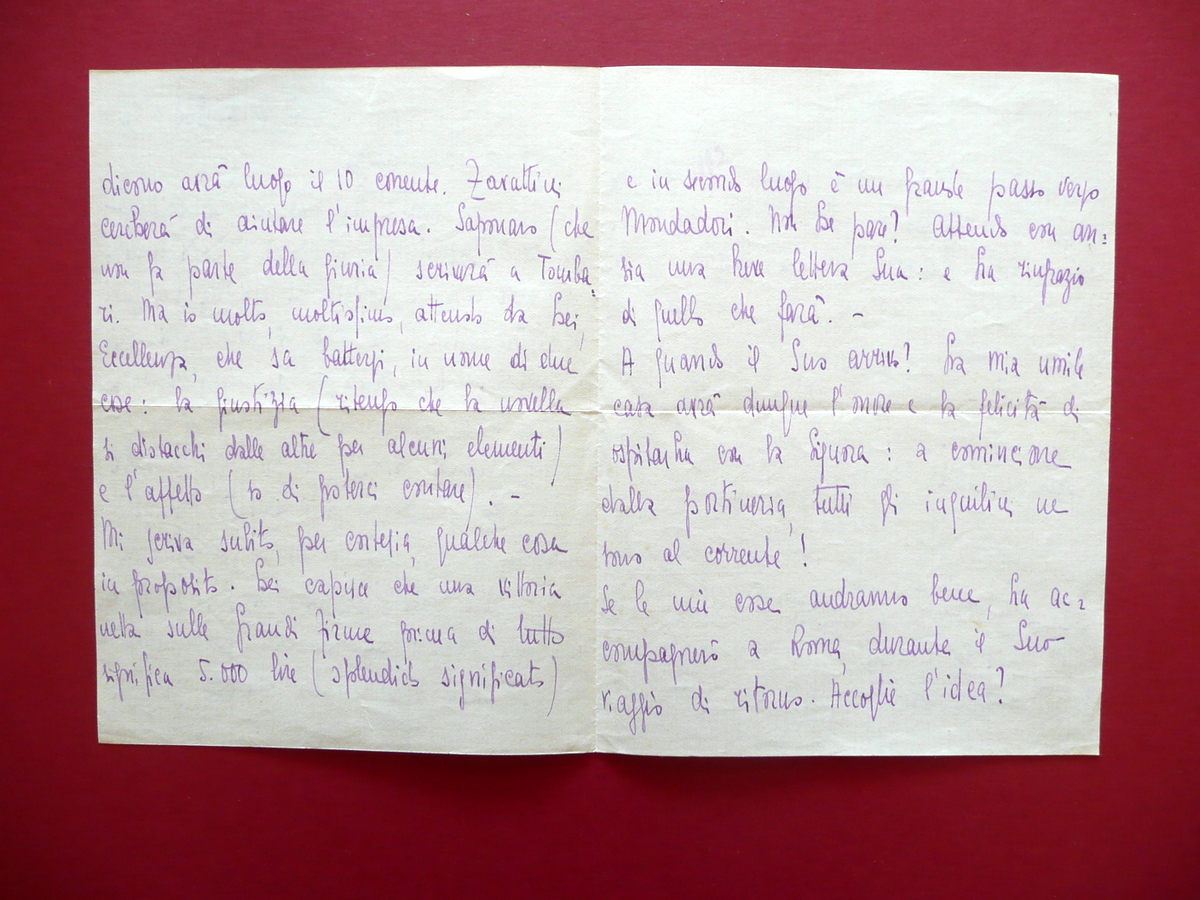 dicono avrà luogo il 10 corrente. Zavattini
cercherà di aiutare l'impresa. Saponaro (che
non fa parte della giuria) scriverà a Tomba-
ri. Ma io molto, moltissimo, attendo da Lei,
Eccellenza, che sa battersi, in nome di due
cose: la giustizia (ritengo che la novella
si distacchi dalle altre per alcuni elementi)
e l'affetto (so di poterci contare). –
Mi scriva subito, per cortesia, qualche cosa
in proposito. Lei capisce che una vittoria
netta sulle Grandi Firme prima di tutto
significa 5.000 lire (splendido significato)
e in secondo luogo è un grande passo verso
Mondadori. Non Le pare? Attendo con an=
sia una breve lettera Sua: e La ringrazio
di quello che farà. –
A quando il Suo arrivo? La mia umile
casa avrà dunque l'onore e la felicità di
ospitarLa con la Signora: a cominciare
dalla portineria, tutti gli inquilini ne
sono al corrente!
Se le mie cose andranno bene, La ac=
compagnerò a Roma, durante il Suo
viaggio di ritorno. Accoglie l'idea?